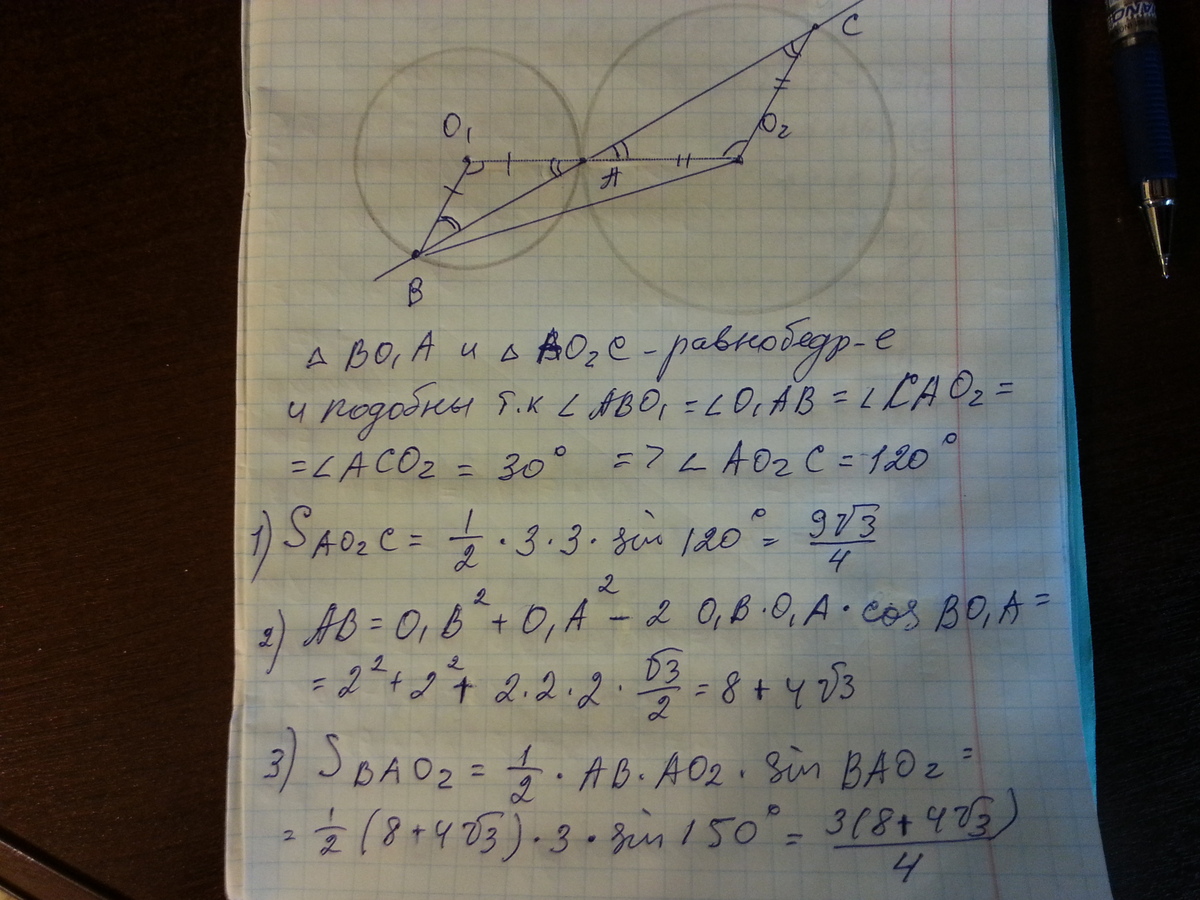 C
O₁
O₂
A
B
△ BO₁A и △ AO₂C - равнобедр-е
и подобны т.к ∠ ABO₁ = ∠O₁AB = ∠CAO₂ =
= ∠ACO₂ = 30° => ∠ AO₂C = 120°
1) S AO₂C = 1/2 · 3 · 3 · sin 120° = 9√3/4
2) AB = O₁B² + O₁A² - 2 O₁B · O₁A · cos BO₁A =
= 2² + 2² + 2 · 2 · 2 · √3/2 = 8 + 4√3
3) S BAO₂ = 1/2 · AB · AO₂ · sin BAO₂ =
= 1/2 (8 + 4√3) · 3 · sin 150° = 3(8 + 4√3)/4